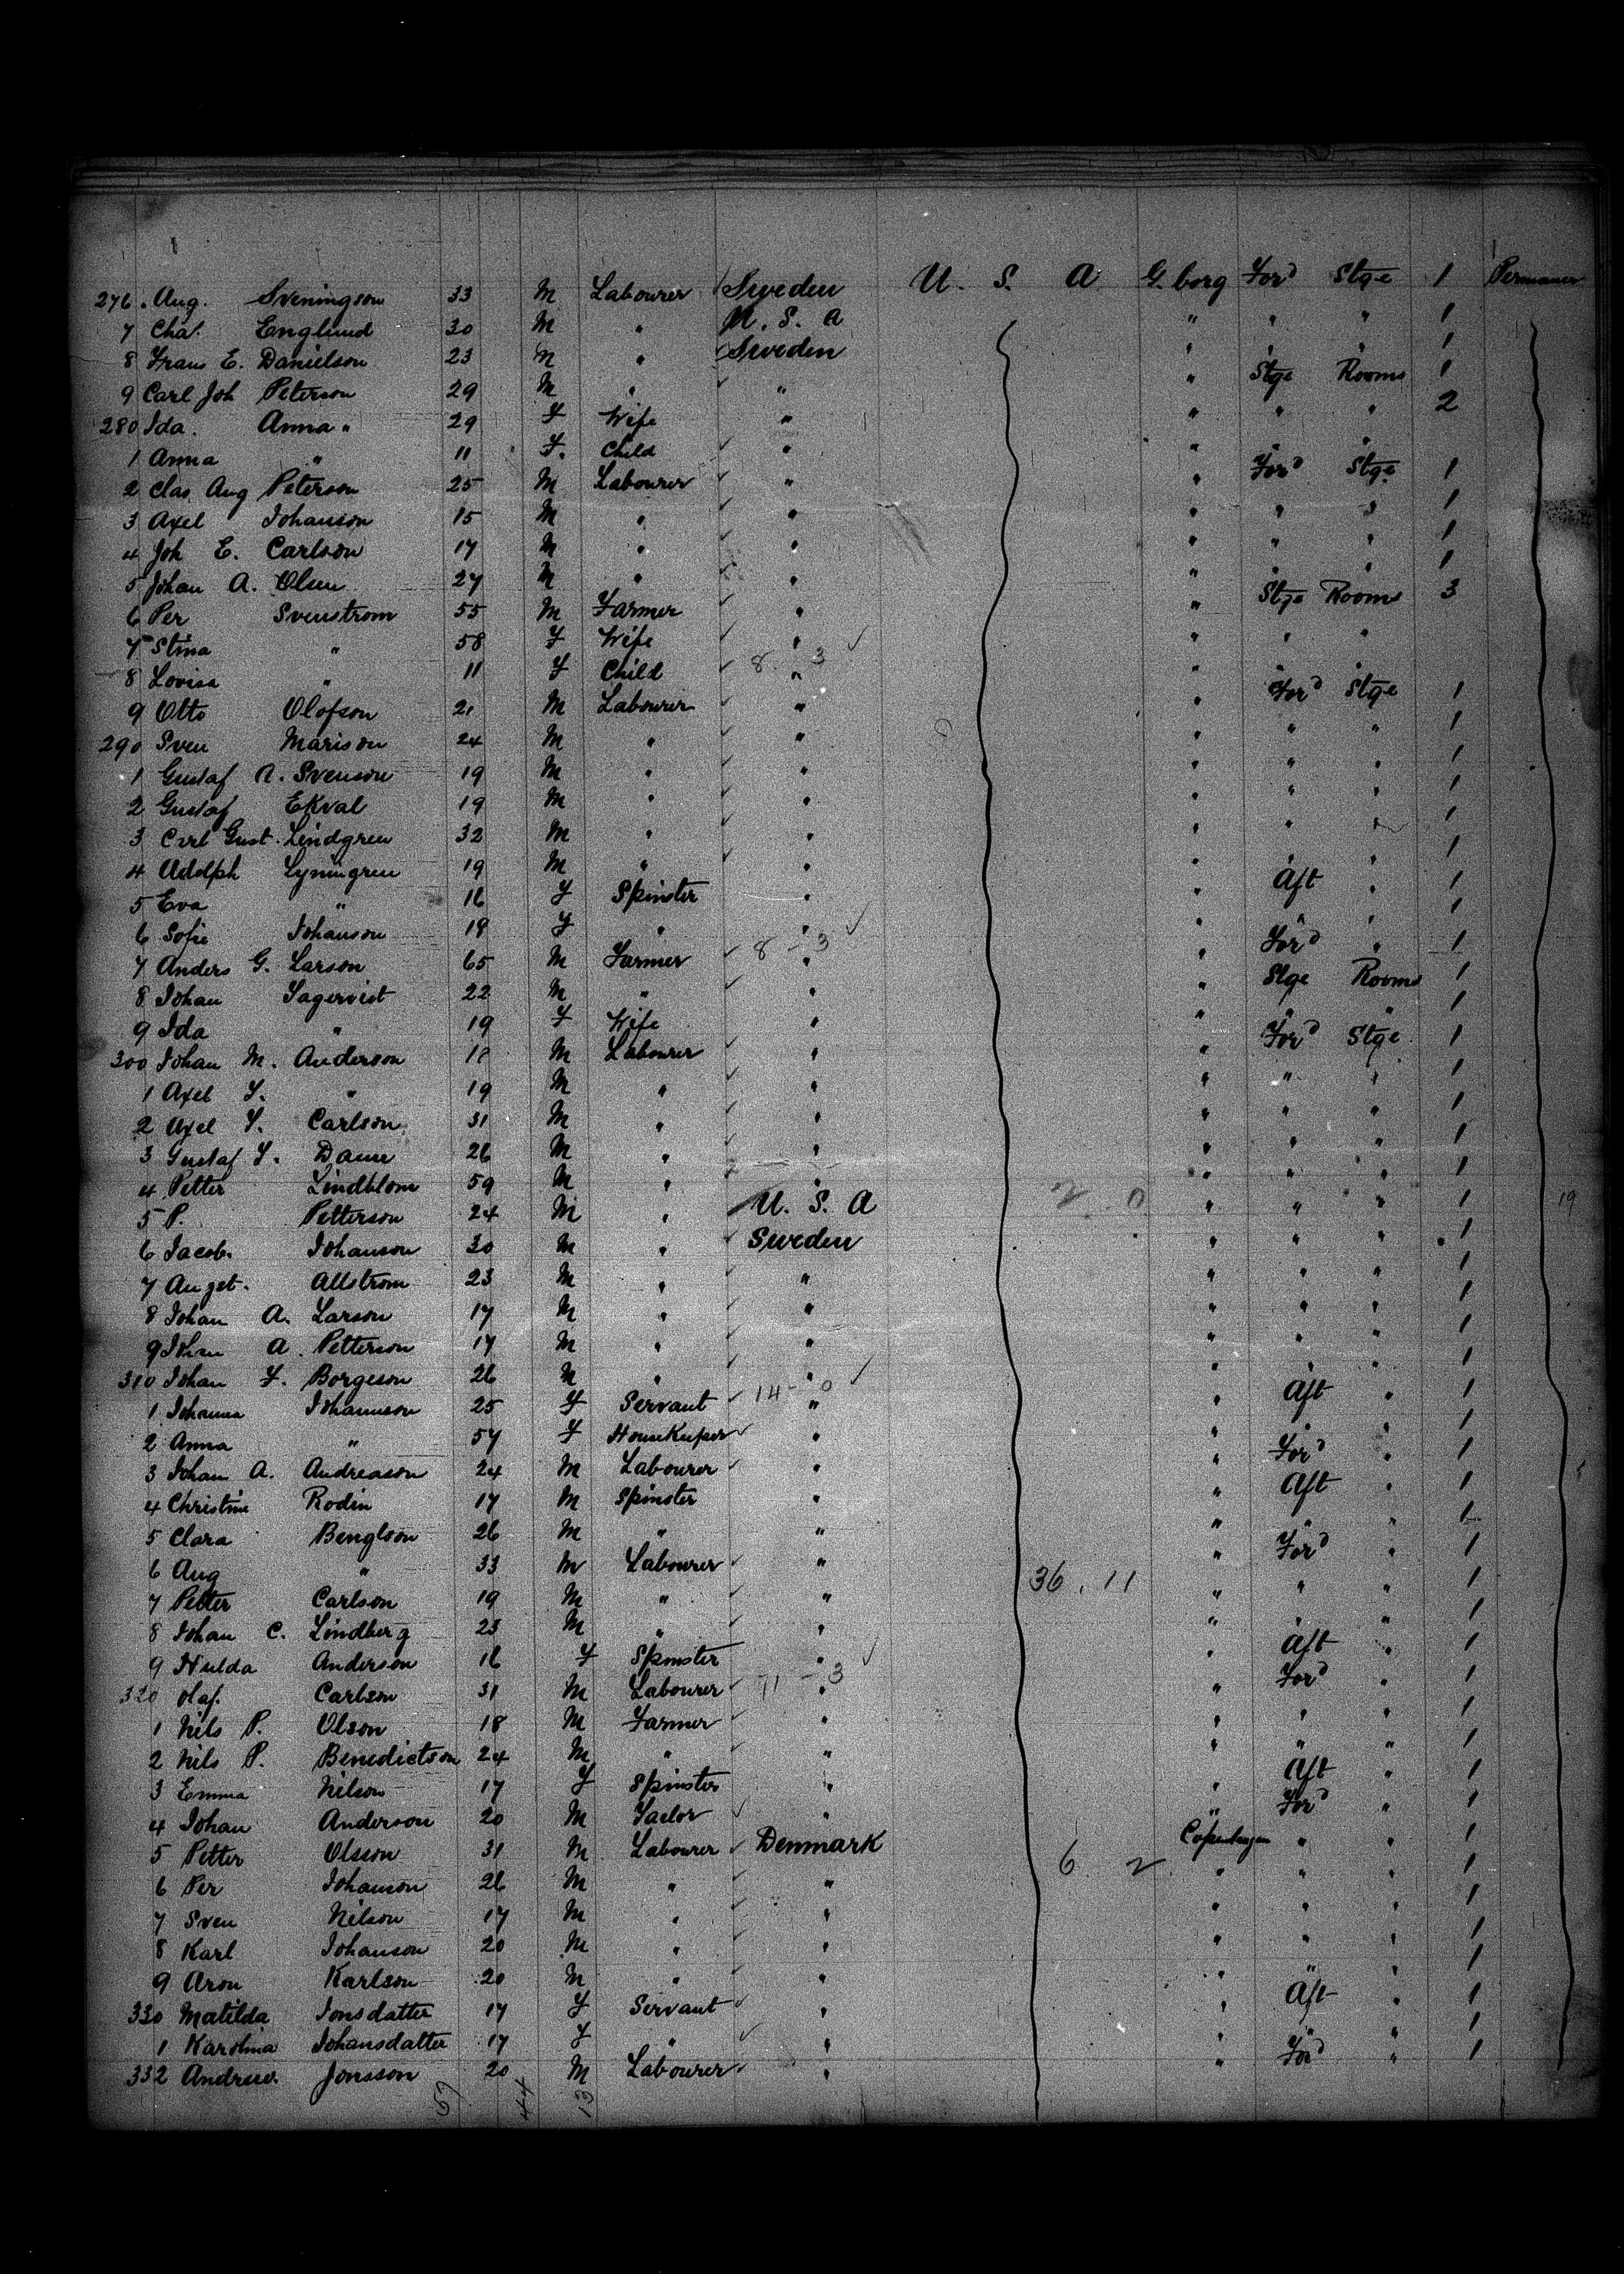 276. Aug. Sveningson 33 M Labourer Sweden U. S. A G. borg For'd Stge 1 Permanen
7 Chas. Englund 30 M " U. S. A " " " 1
8 Frans E. Danielson 23 M " Sweden " " " 1
9 Carl Joh Peterson 29 M " " " Stge Rooms 1
280 Ida. Anna " 29 F Wife " " " " 2
1 Anna " 11 F. Child " "
2 Clas Aug Peterson 25 M Labourer " " For'd Stge 1
3 Axel Johanson 15 M " " " " " 1
4 Joh E. Carlson 17 M " " " " " 1
5 Johan A. Olsen 27 M " " " " " 1
6 Per Svenstrom 55 M Farmer " " Stge Rooms 3
7 Stina " 58 F Wife " " " "
8 Lovisa " 11 F Child 8 3 " "
9 Otto Olofson 21 M Labourer " " For'd Stge 1
290 Sven Marison 24 M " " " " " 1
1 Gustaf A. Svenson 19 M " " " " " 1
2 Gustaf Ekval 19 M " " " " " 1
3 Carl Gust. Lindgren 32 M " " " " " 1
4 Adolph 19 M " " " " " 1
5 Eva " 16 F Spinster " " Aft " 1
6 Sofie Johanson 19 F " " " " " 1
7 Anders G. Larson 65 M Farmer 8 - 3 " " For'd " 1
8 Johan 22 M " " " Stge Rooms 1
9 Ida " 19 F Wife " " " " 1
300 Johan M. Anderson 18 M Labourer " " For'd Stge 1
1 Axel " 19 M " " " " " 1
2 Axel Carlson 31 M " " " " " 1
3 Gustaf 26 M " " " " " 1
4 Petter Lindblom 59 M " " " " " 1
5 P. Petterson 24 M " U. S. A 2 0 " " " 1 19
6 Jacob. Johanson 30 M " Sweden " " " 1
7 Augst. Allstrom 23 M " " " " " 1
8 Johan A. Larson 17 M " " " " " 1
9 Johan A. Petterson 17 M " " " " " 1
310 Johan F. Borgeson 26 M " " " " " 1
1 Johanna Johannson 25 F Servant 14 - 0 " " Aft " 1
2 Anna " 57 F HouseKeeper " " " " 1
3 Johan A. Andreason 24 M Labourer " " For'd " 1
4 Christine Rodin 17 M Spinster " " Aft " 1
5 Clara Bengtson 26 M " " " " " 1
6 Aug " 33 M Labourer " " For'd " 1
7 Petter Carlson 19 M " " 36. 11 " " " 1
8 Johan C. Lindberg 23 M " " " " " 1
9 Hulda Anderson 16 F Spinster " " Aft " 1
320 Olaf. Carlson 31 M Labourer 71 - 3 " " For'd " 1
1 Nils P. Olson 18 M Farmer " " " " 1
2 Nils P. Benedictson 24 M " " " " " 1
3 Emma Nilson 17 F Spinster " " Aft " 1
4 Johan Anderson 20 M Tailor " " For'd " 1
5 Petter Olsson 31 M Labourer Denmark 6 2 Copenhagen " " 1
6 Per Johanson 26 M " " " " " 1
7 Sven Nilson 17 M " " " " " 1
8 Karl Johanson 20 M " " " " " 1
9 Aron Karlson 20 M " " " " " 1
330 Matilda Jonsdatter 17 F Servant " " Aft " 1
1 Karolina Johansdatter 17 F " " " " " 1
332 Andrew. Jonsson 20 M Labourer " " For'd " 1
57 44 13